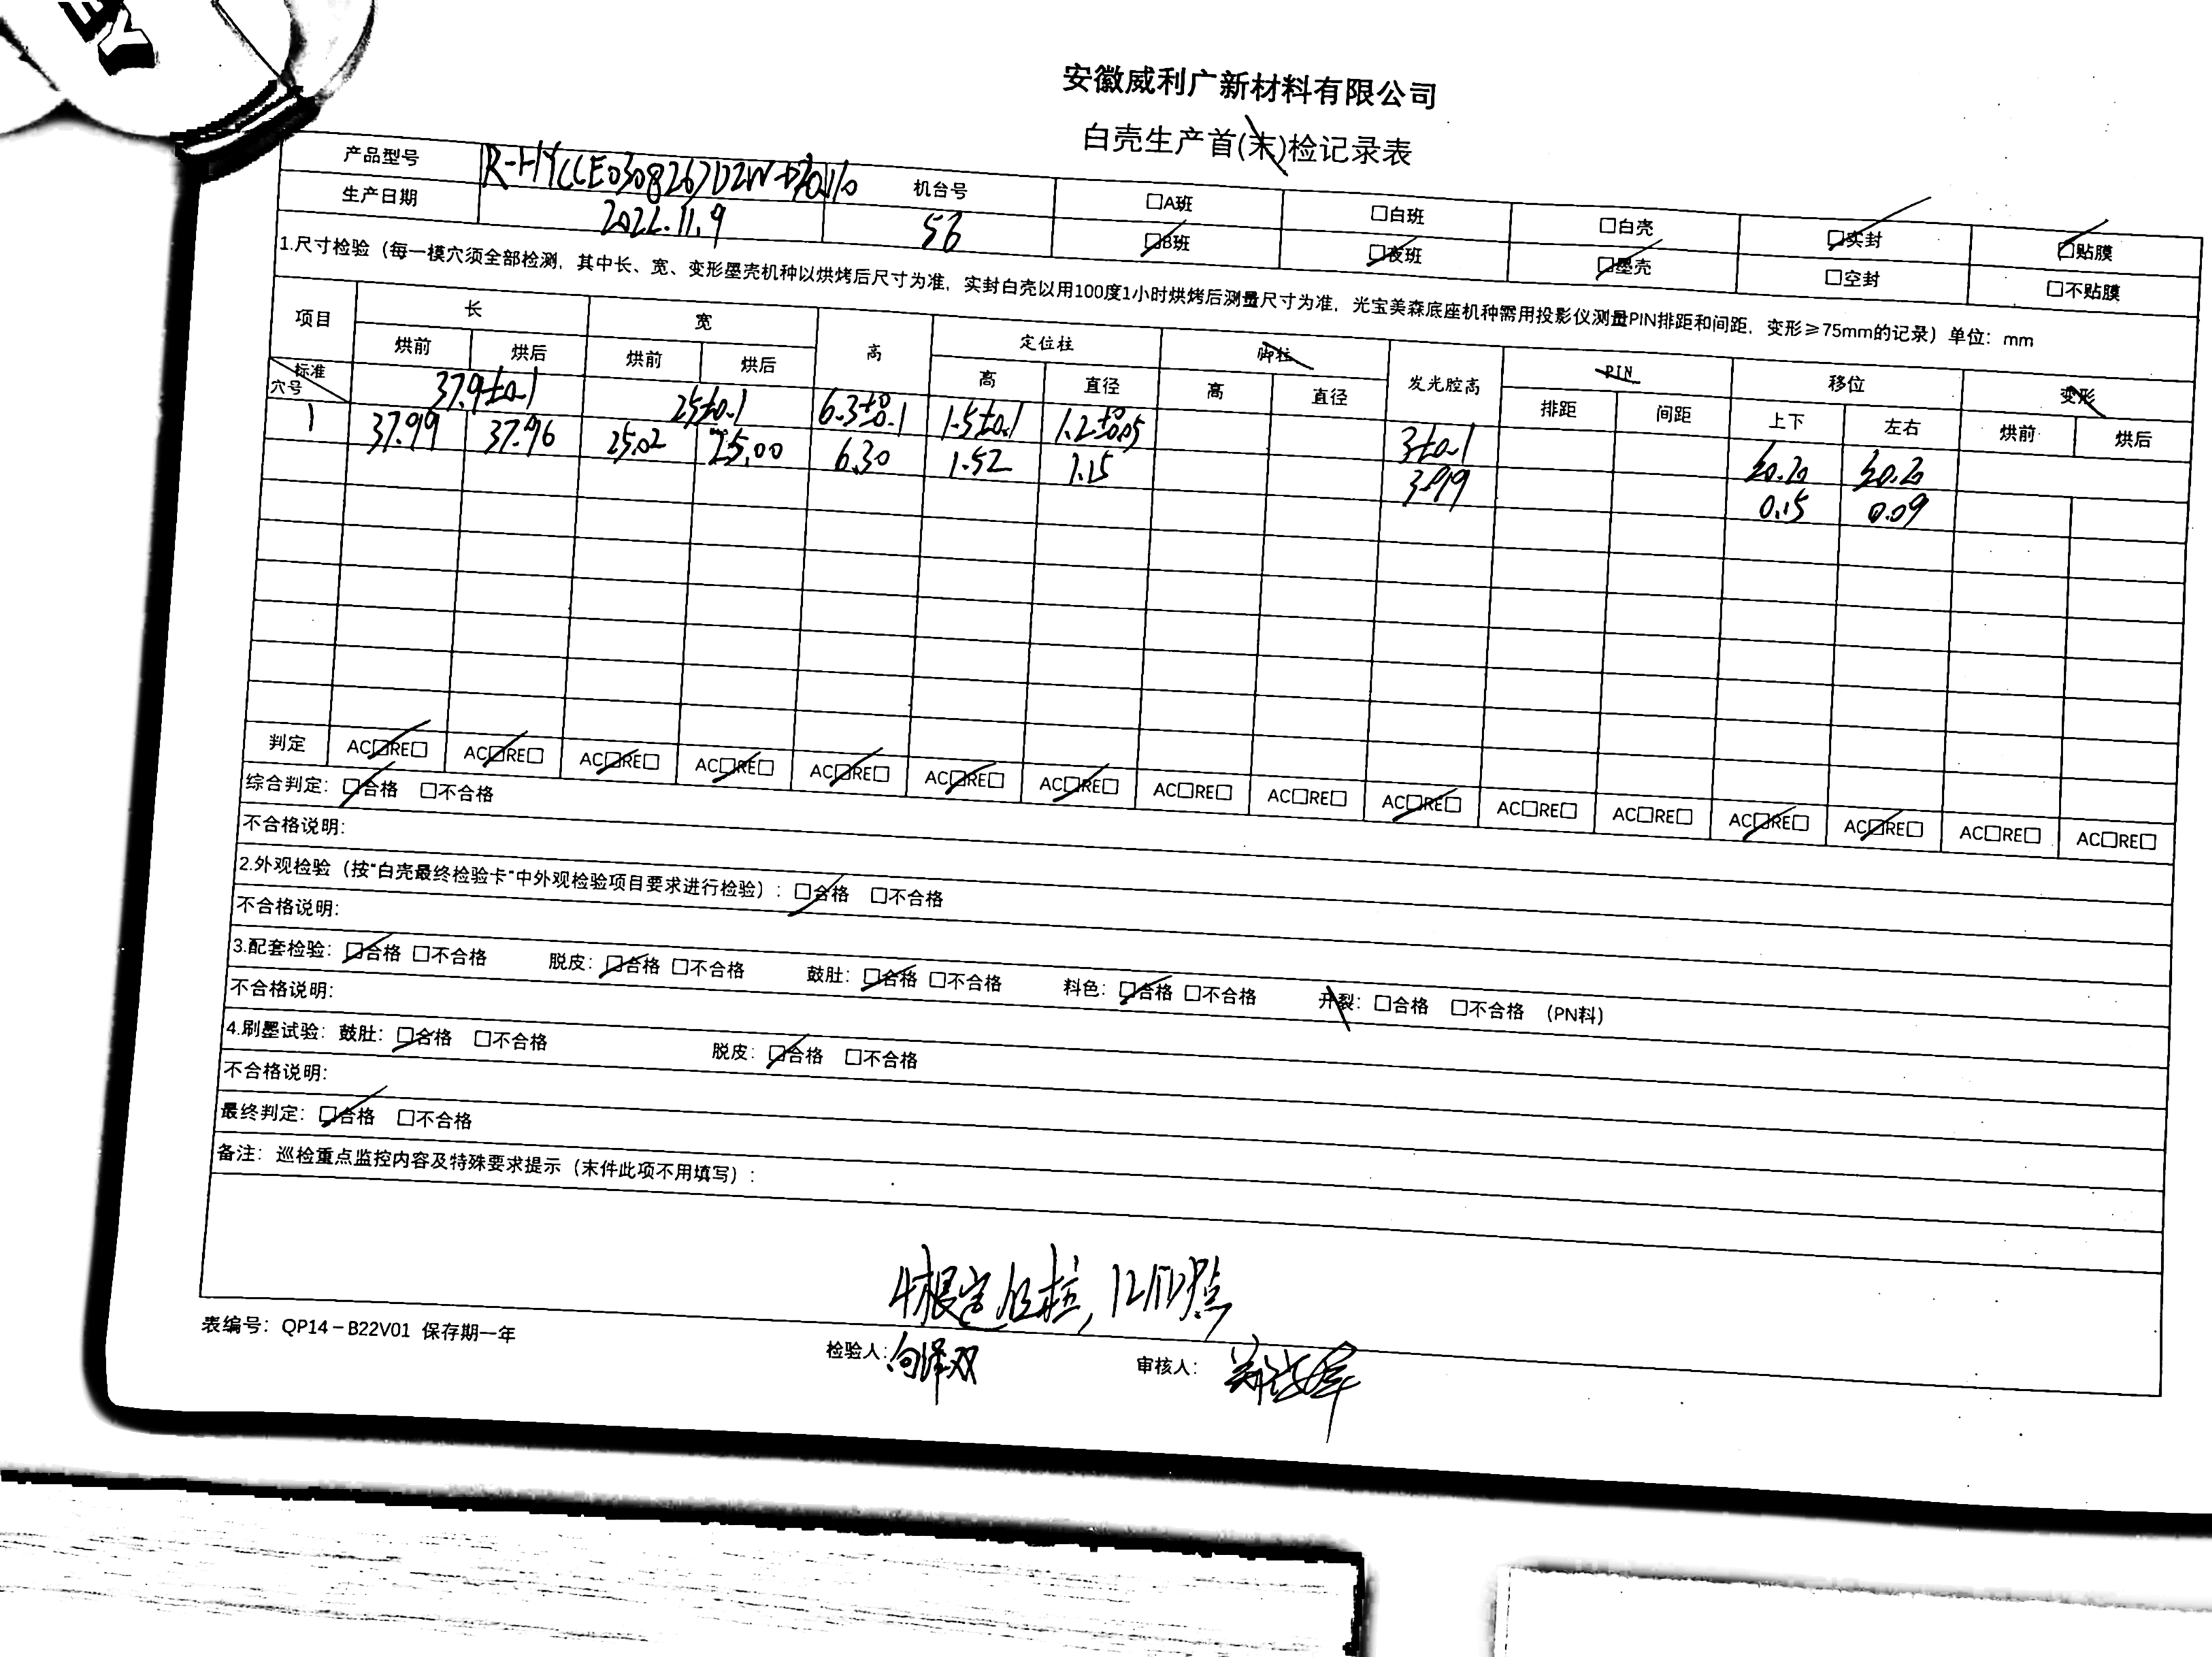 EY
安徽威利广新材料有限公司
白壳生产首(末)检记录表
产品型号 机台号 □A班 □白班 □白壳 □实封 □贴膜
生产日期 2022.11.9 56 □B班 □夜班 □墨壳 □空封 □不贴膜
1.尺寸检验（每一模穴须全部检测，其中长、宽、变形墨壳机种以烘烤后尺寸为准，实封白壳以用100度1小时烘烤后测量尺寸为准，光宝美森底座机种需用投影仪测量PIN排距和间距，变形≥75mm的记录）单位：mm
项目 长 宽 高 定位柱 脚柱 发光腔高 PIN 移位 变形
烘前 烘后 烘前 烘后 高 直径 高 直径 排距 间距 上下 左右 烘前 烘后
标准 穴号 37.9±0.1 25±0.1 6.3±0.1 1.5±0.1 1.2±0.05 3±0.1 ≤0.20 ≤0.20
1 37.99 37.96 25.02 25.00 6.30 1.52 1.15 0.15 0.09
判定 AC□RE□ AC□RE□ AC□RE□ AC□RE□ AC□RE□ AC□RE□ AC□RE□ AC□RE□ AC□RE□ AC□RE□ AC□RE□ AC□RE□ AC□RE□ AC□RE□ AC□RE□ AC□RE□
综合判定：□合格 □不合格
不合格说明：
2.外观检验（按"白壳最终检验卡"中外观检验项目要求进行检验）：□合格 □不合格
不合格说明：
3.配套检验：□合格 □不合格 脱皮：□合格 □不合格 鼓肚：□合格 □不合格 料色：□合格 □不合格 开裂：□合格 □不合格 （PN料）
不合格说明：
4.刷墨试验：鼓肚：□合格 □不合格 脱皮：□合格 □不合格
不合格说明：
最终判定：□合格 □不合格
备注：巡检重点监控内容及特殊要求提示（末件此项不用填写）：
4根定位柱，12
表编号：QP14－B22V01 保存期一年 检验人：向泽双 审核人：